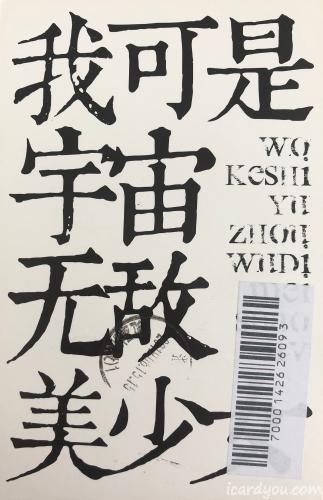 我可是
宇宙
无敌
美少
WO
KeSHi
YU
ZHOU
WUDi
70001426260​93
icardyou.com